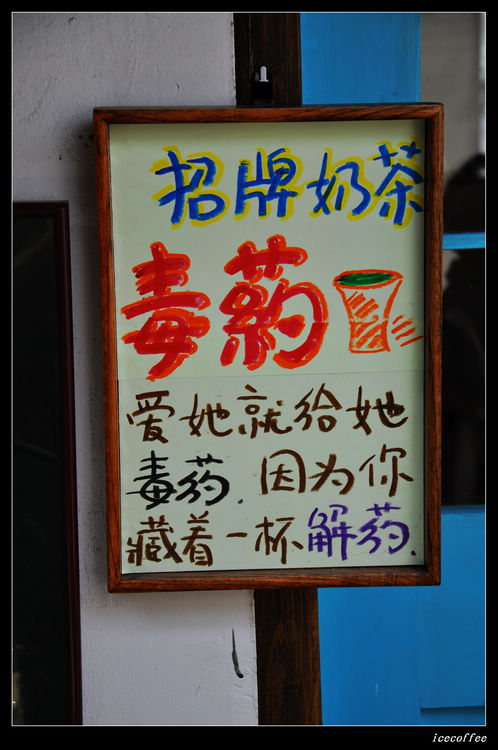 招牌奶茶
毒药
爱她就给她
毒药. 因为你
藏着一杯解药.
icecoffee